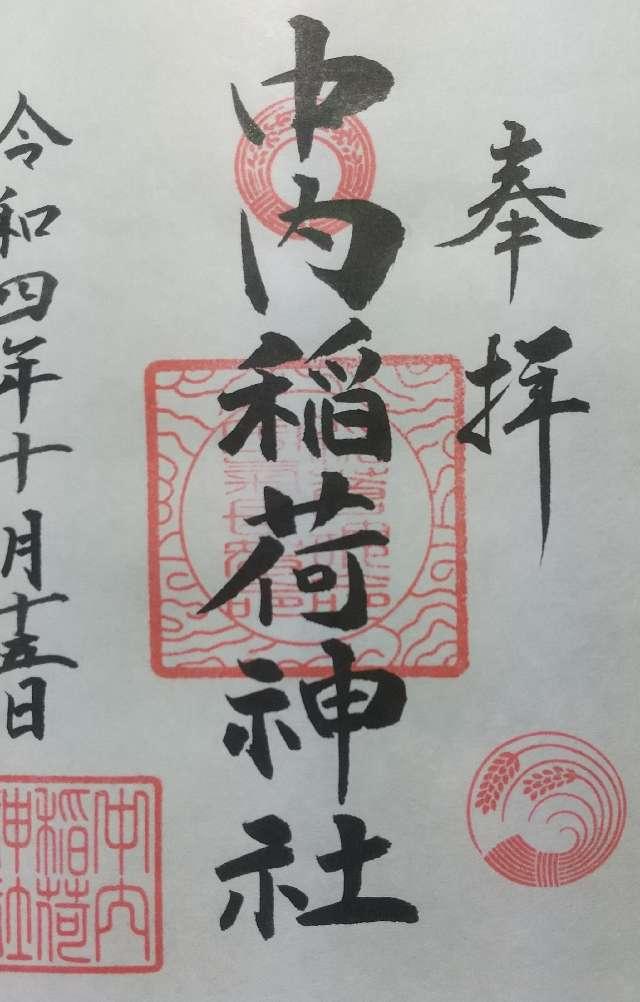 奉拝
中内稲荷神社
令和四年十月十五日
中内
稲荷
神社